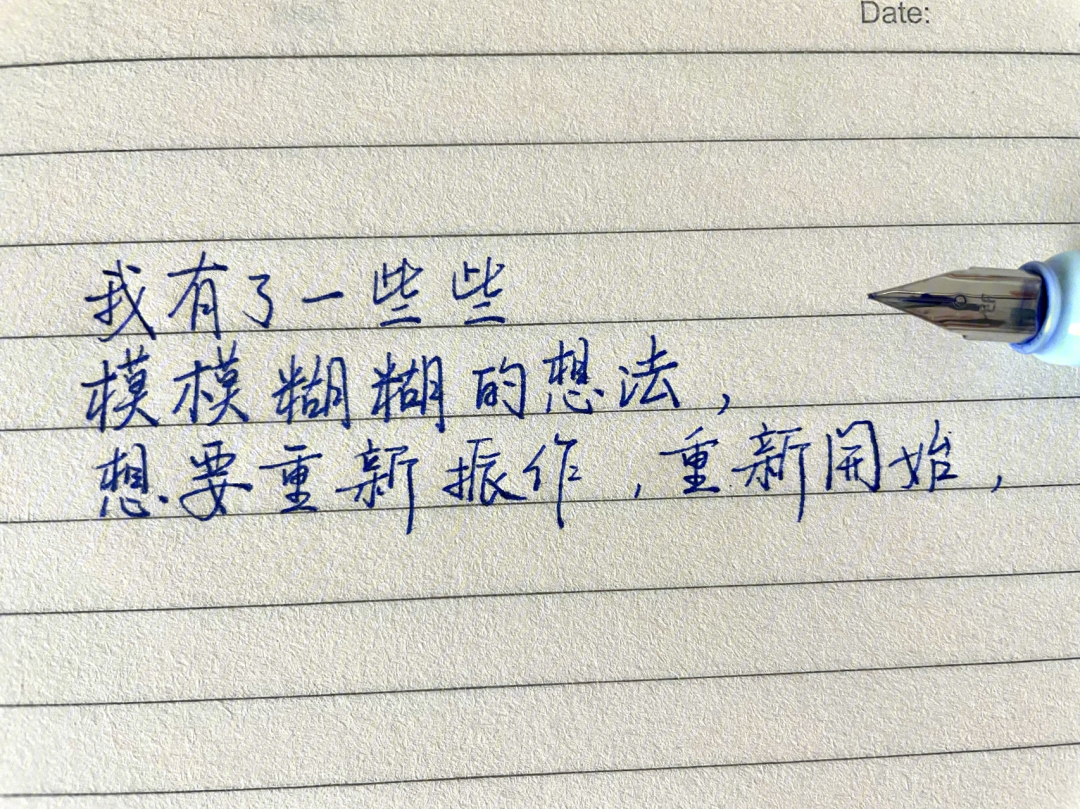 Date:
我有了一些些
模模糊糊的想法，
想要重新振作，重新開始，